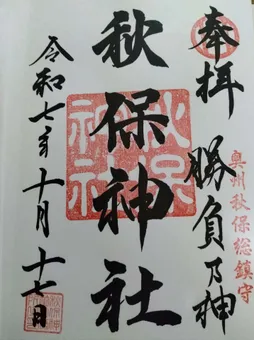 奉拝 勝負乃神
奥州秋保総鎮守
秋保神社
秋保神社
令和七年十月十七日